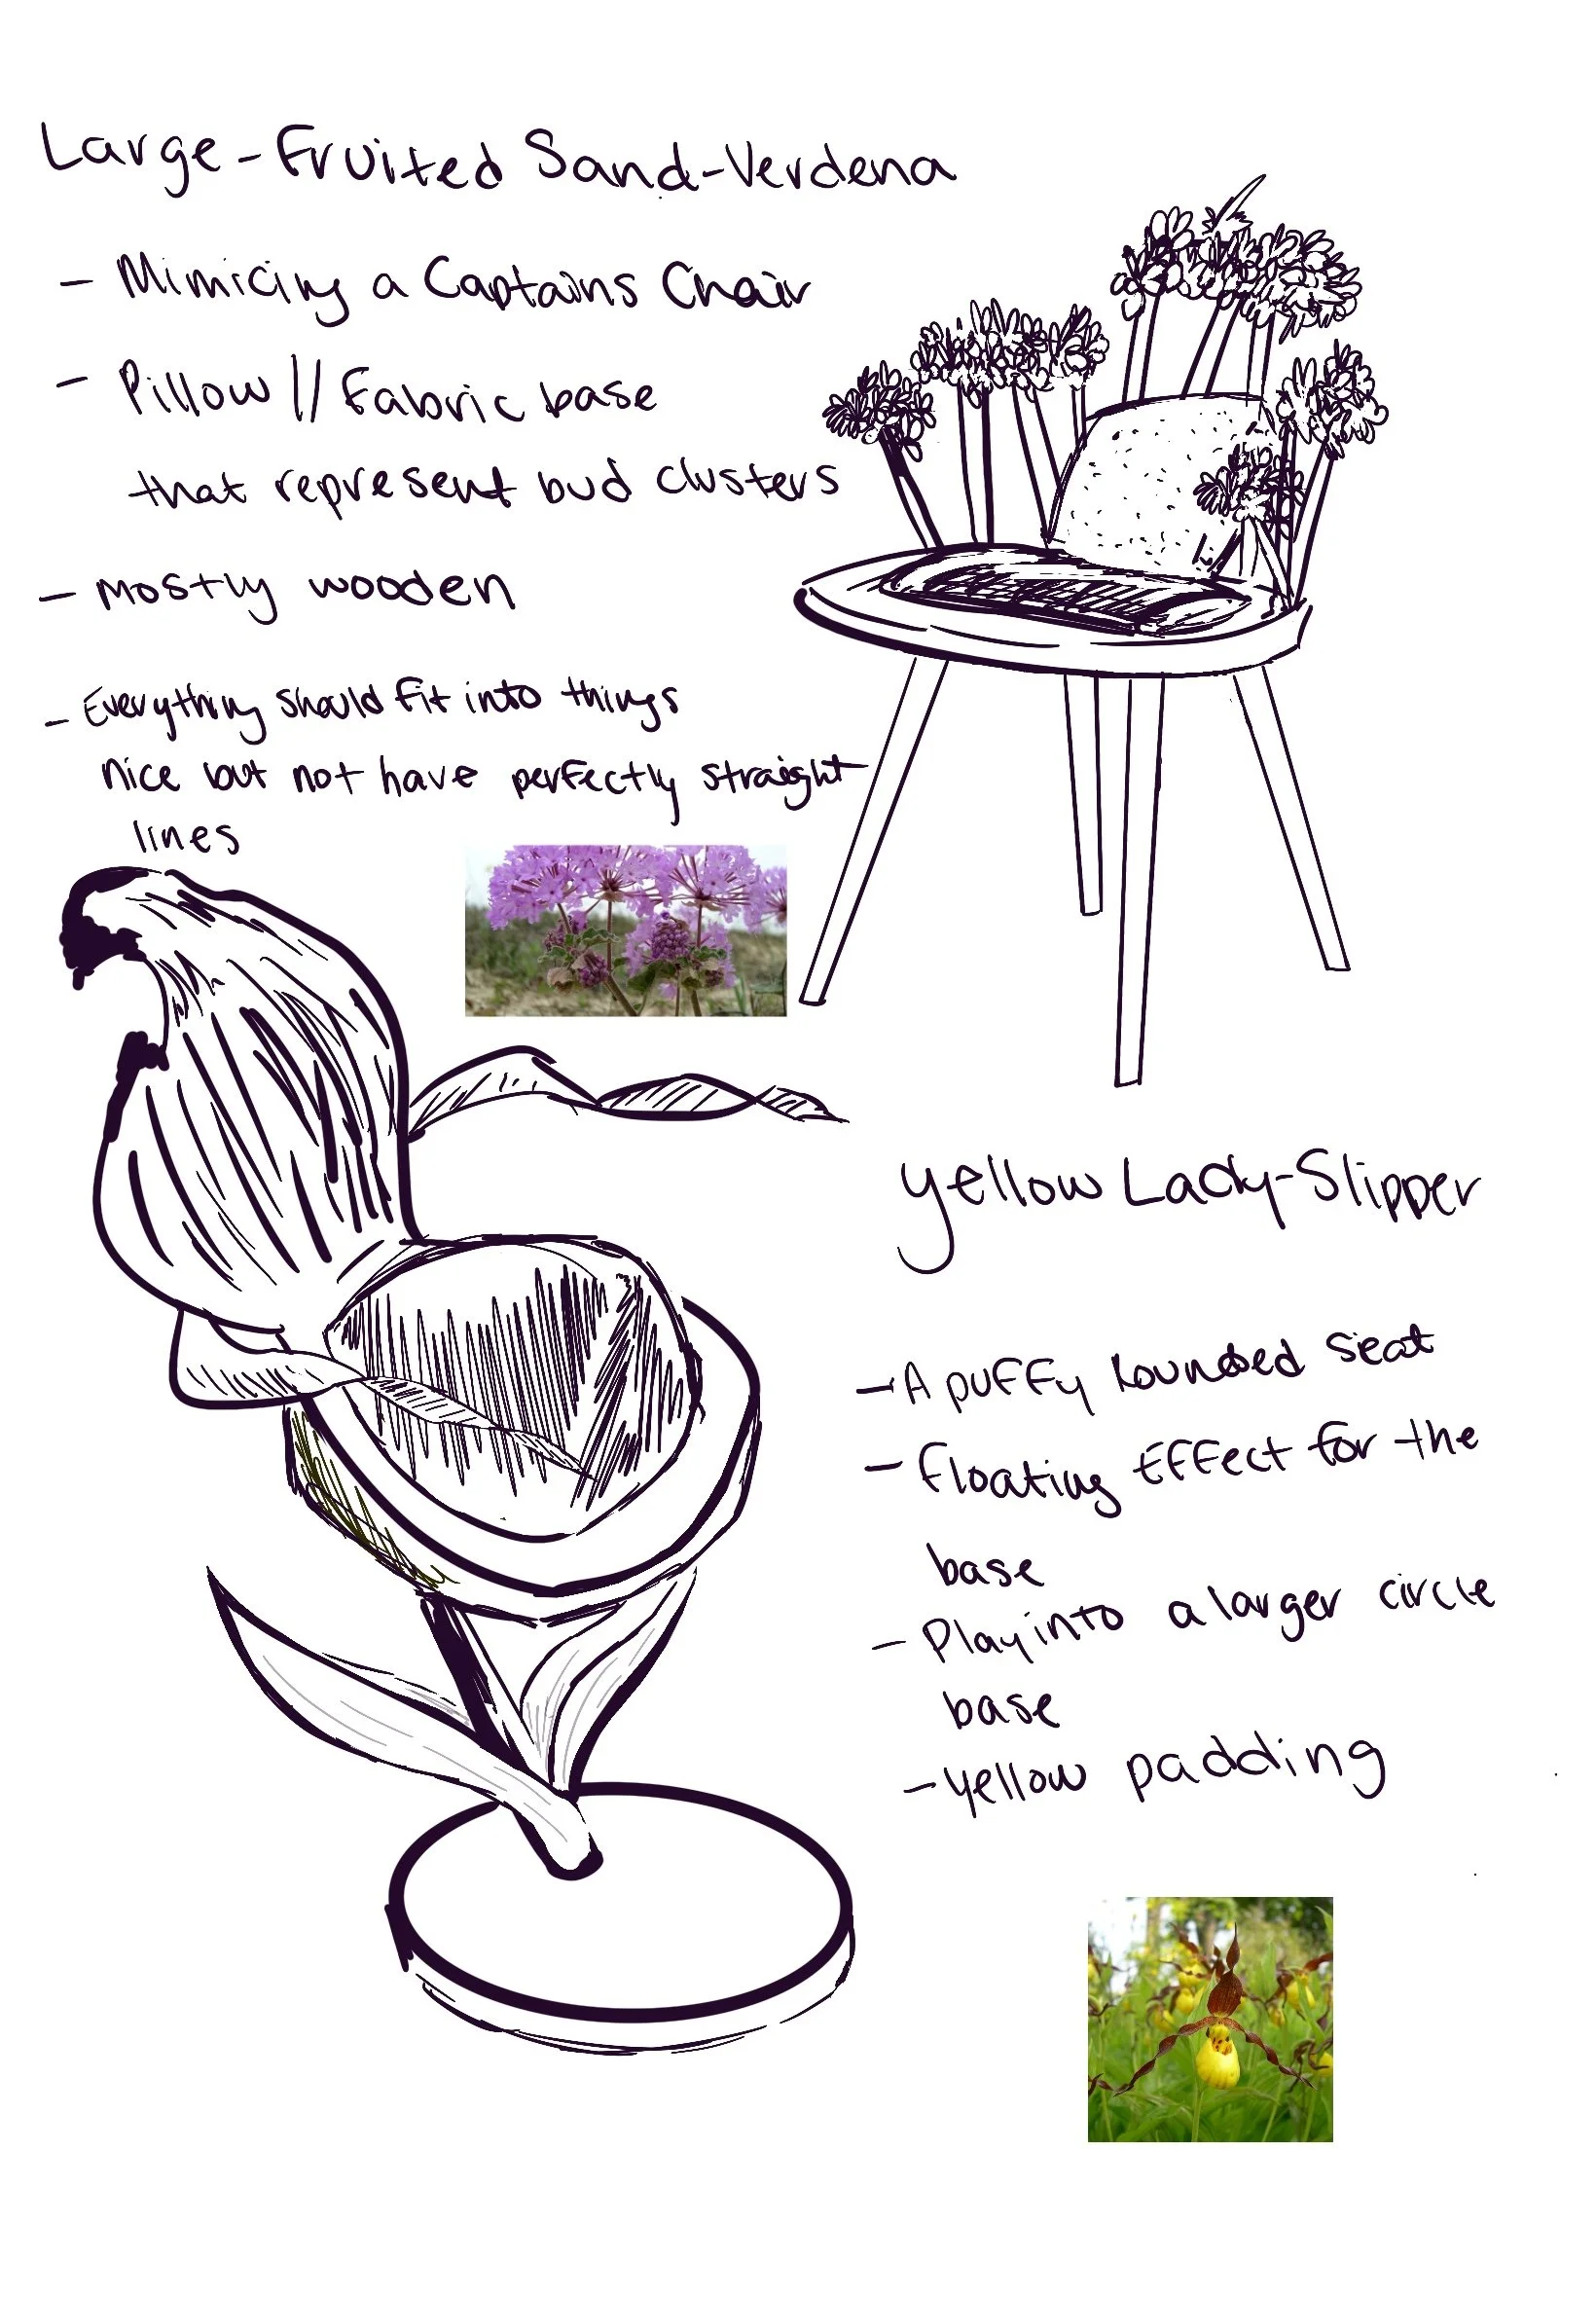 Large-Fruited Sand-Verdena
- Mimicing a Captains Chair
- Pillow // Fabric base
that represent bud clusters
- mostly wooden
- Everything should fit into things
nice but not have perfectly straight
lines
Yellow Lady-Slipper
- A puffy Rounded seat
- Floating Effect for the
base
- Play into a larger circle
base
- Yellow padding